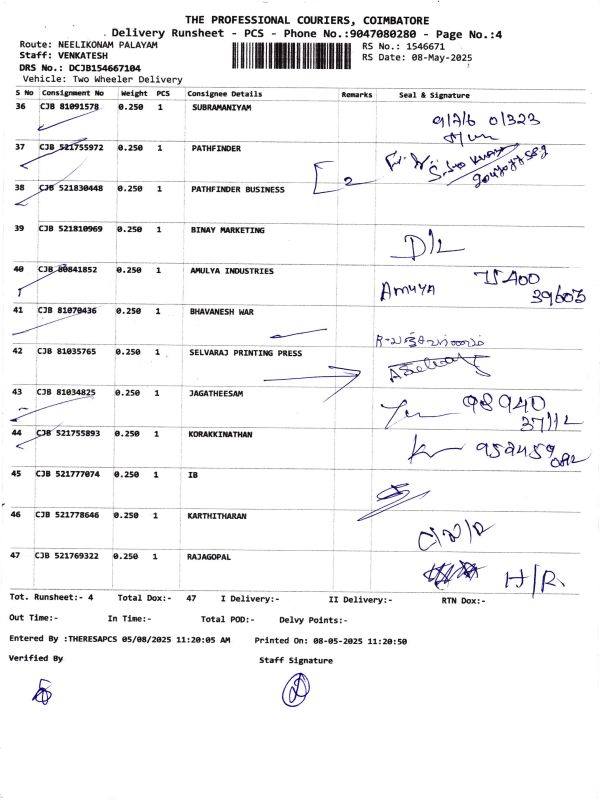 THE PROFESSIONAL COURIERS, COIMBATORE
Delivery Runsheet - PCS - Phone No.:9047080280 - Page No.:4
Route: NEELIKONAM PALAYAM RS No.: 1546671
Staff: VENKATESH RS Date: 08-May-2025
DRS No.: DCJB154667104
Vehicle: Two Wheeler Delivery
S No Consignment No Weight PCS Consignee Details Remarks Seal & Signature
36 CJB 81091578 0.250 1 SUBRAMANIYAM
37 CJB 521755972 0.250 1 PATHFINDER
38 CJB 521830448 0.250 1 PATHFINDER BUSINESS 2
39 CJB 521810969 0.250 1 BINAY MARKETING D/L
40 CJB 80841852 0.250 1 AMULYA INDUSTRIES AMUYA
39603
41 CJB 81070436 0.250 1 BHAVANESH WAR
42 CJB 81035765 0.250 1 SELVARAJ PRINTING PRESS
43 CJB 81034825 0.250 1 JAGATHEESAM 98940
44 CJB 521755893 0.250 1 KORAKKINATHAN
45 CJB 521777074 0.250 1 IB
46 CJB 521778646 0.250 1 KARTHITHARAN
47 CJB 521769322 0.250 1 RAJAGOPAL H/R.
Tot. Runsheet:- 4 Total Dox:- 47 I Delivery:- II Delivery:- RTN Dox:-
Out Time:- In Time:- Total POD:- Delvy Points:-
Entered By :THERESAPCS 05/08/2025 11:20:05 AM Printed On: 08-05-2025 11:20:50
Verified By Staff Signature